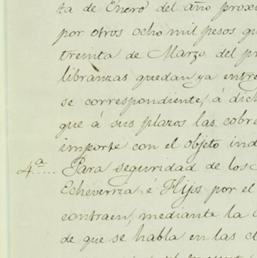 ta de Enero del año proxi
por otros ocho mil pesos qu
treinta de Marzo del pr
libranzas quedan ya entre
se correspondiente, á dich
que á sus plazos las cobre
importe con el objeto ind
4ª.... Para seguridad de los S
Echeverria é Hijos por el
contraen, mediante la c
de que se habla en las cl